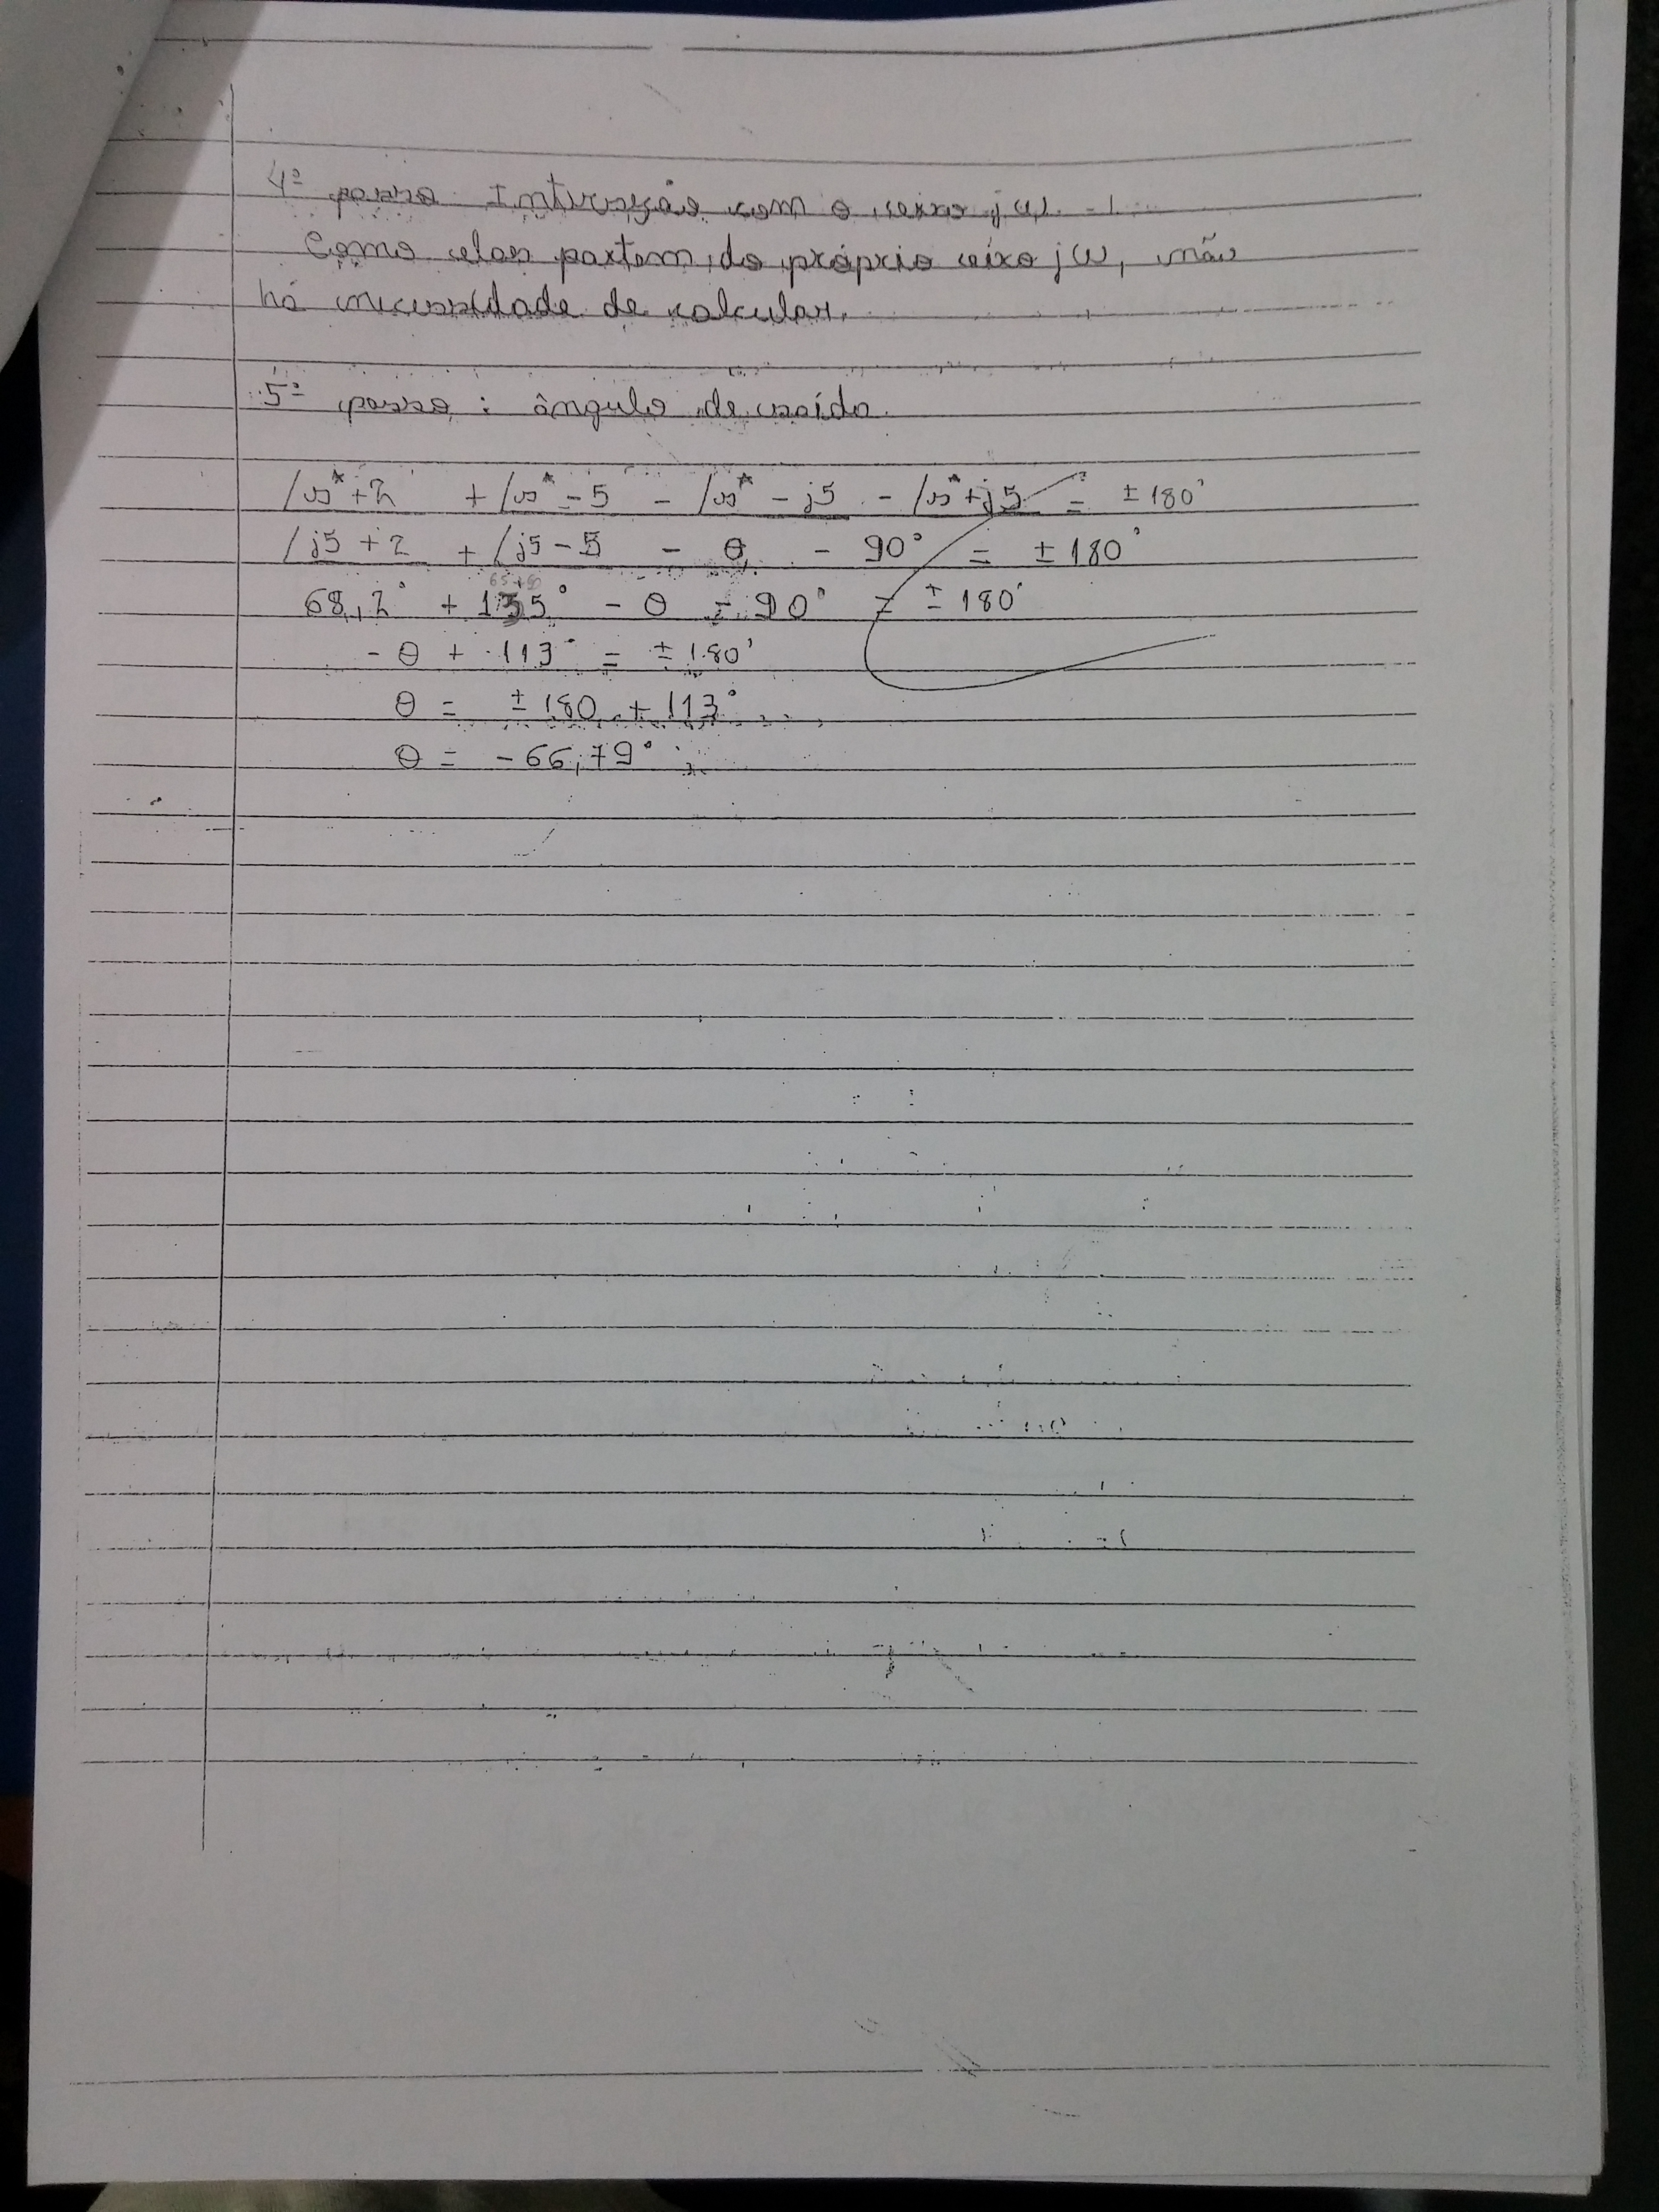 4º passo Interseção com o eixo jω.
Como elas partem do próprio eixo jω, não
há necessidade de calcular.
5º passo: ângulo de saída.
/s*+2 + /s*-5 - /s*-j5 - /s*+j5 = ±180°
/j5+2 + /j5-5 - θ - 90° = ±180°
68,2° + 135° - θ - 90° = ±180°
-θ + 113° = ±180°
θ = ±180 + 113°
θ = -66,79°